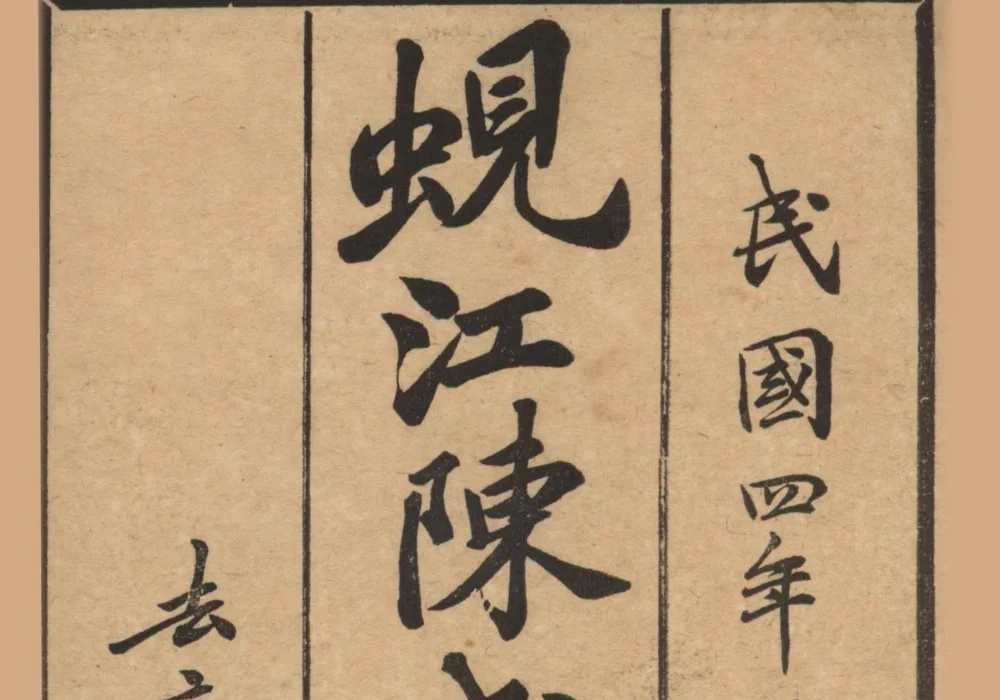 民國四年
蜆江陳
去